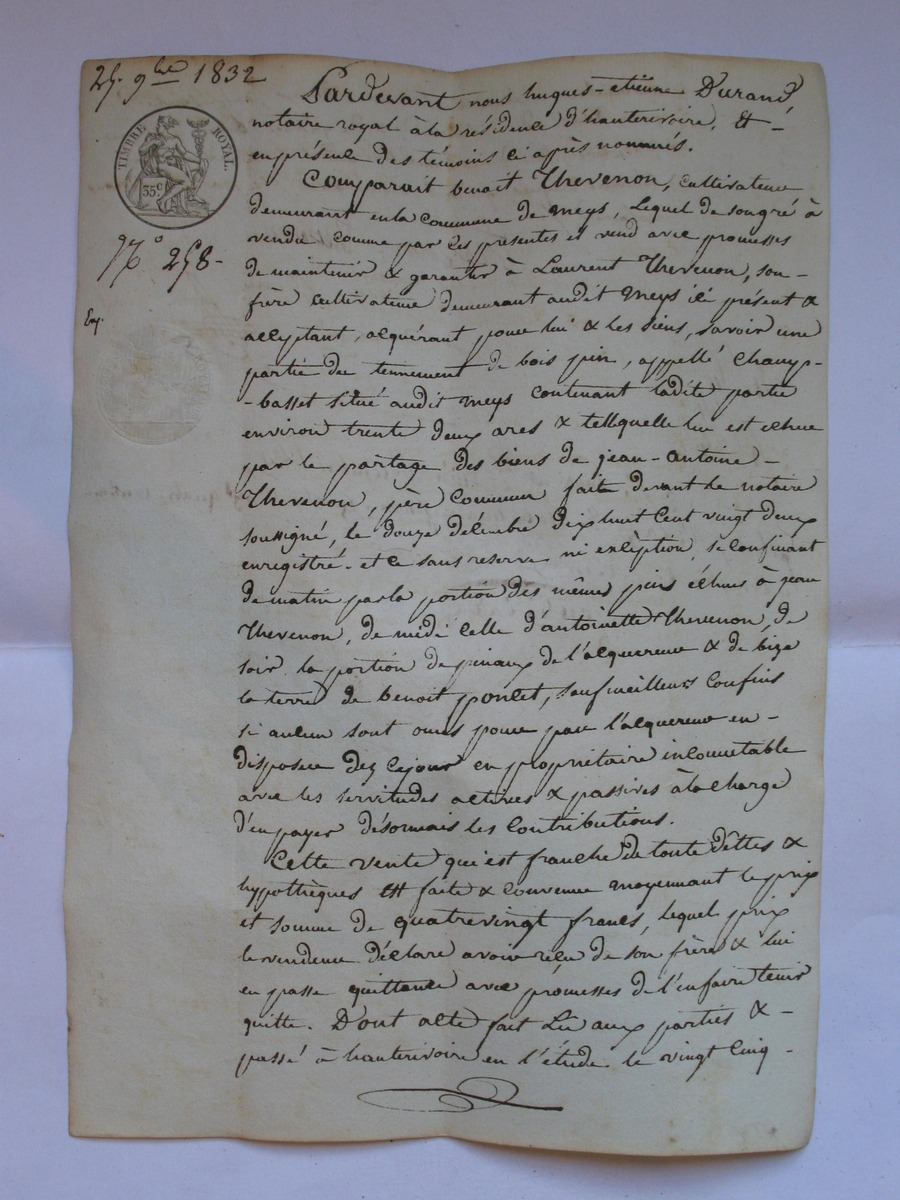 25. 9bre 1832
TIMBRE ROYAL.
35 c
N° 258 -
Enr.
Pardevant nous hugues-etienne Durand
notaire royal à la résidence d'hauterivoire. Et -
en présence des témoins ci après nommés.
Comparait benoit Thevenon, cultivateur
demeurant en la commune de meys, lequel de son gré à
vendu comme par ces presentes il vend avec promesses
de maintenir & garantir à Laurent Thevenon, son -
frère cultivateur demeurant audit meys ici présent &
acceptant, acquérant pour lui & les siens, savoir une
partie du tennement de bois pin, appellé champ-
-basset situé audit meys contenant ladite partie
environ trente deux ares & tellequelle lui est echue
par le partage des biens de jean-antoine -
Thevenon, père commun faite devant le notaire
soussigné, le douze décembre dix huit cent vingt deux
enregistré. et ce sans reserve ni exception, se confinant
de matin par la portion des mêmes pins échues à jean
Thevenon, de midi celle d'antoinette Thevenon, de
soir la portion de pinaux de l'acquereur & de bize
la terre de benoit poncet, sauf meilleurs confins
si aucun sont omis pour par l'acquereur en -
disposer dez cejour en propriétaire incommutable
avec les servitudes actives & passives à la charge
d'en payer désormais les contributions.
Cette vente qui est franche de toute dêttes &
hypothèques est faite & convenue moyennant le prix
et somme de quatrevingt francs, lequel prix
le vendeur déclare avoir réçu de son frère & lui
en passe quittance avec promesses de l'en faire tenir
quitte. Dont acte fait Lu aux parties & -
passé à hauterivoire en l'étude le vingt cinq -